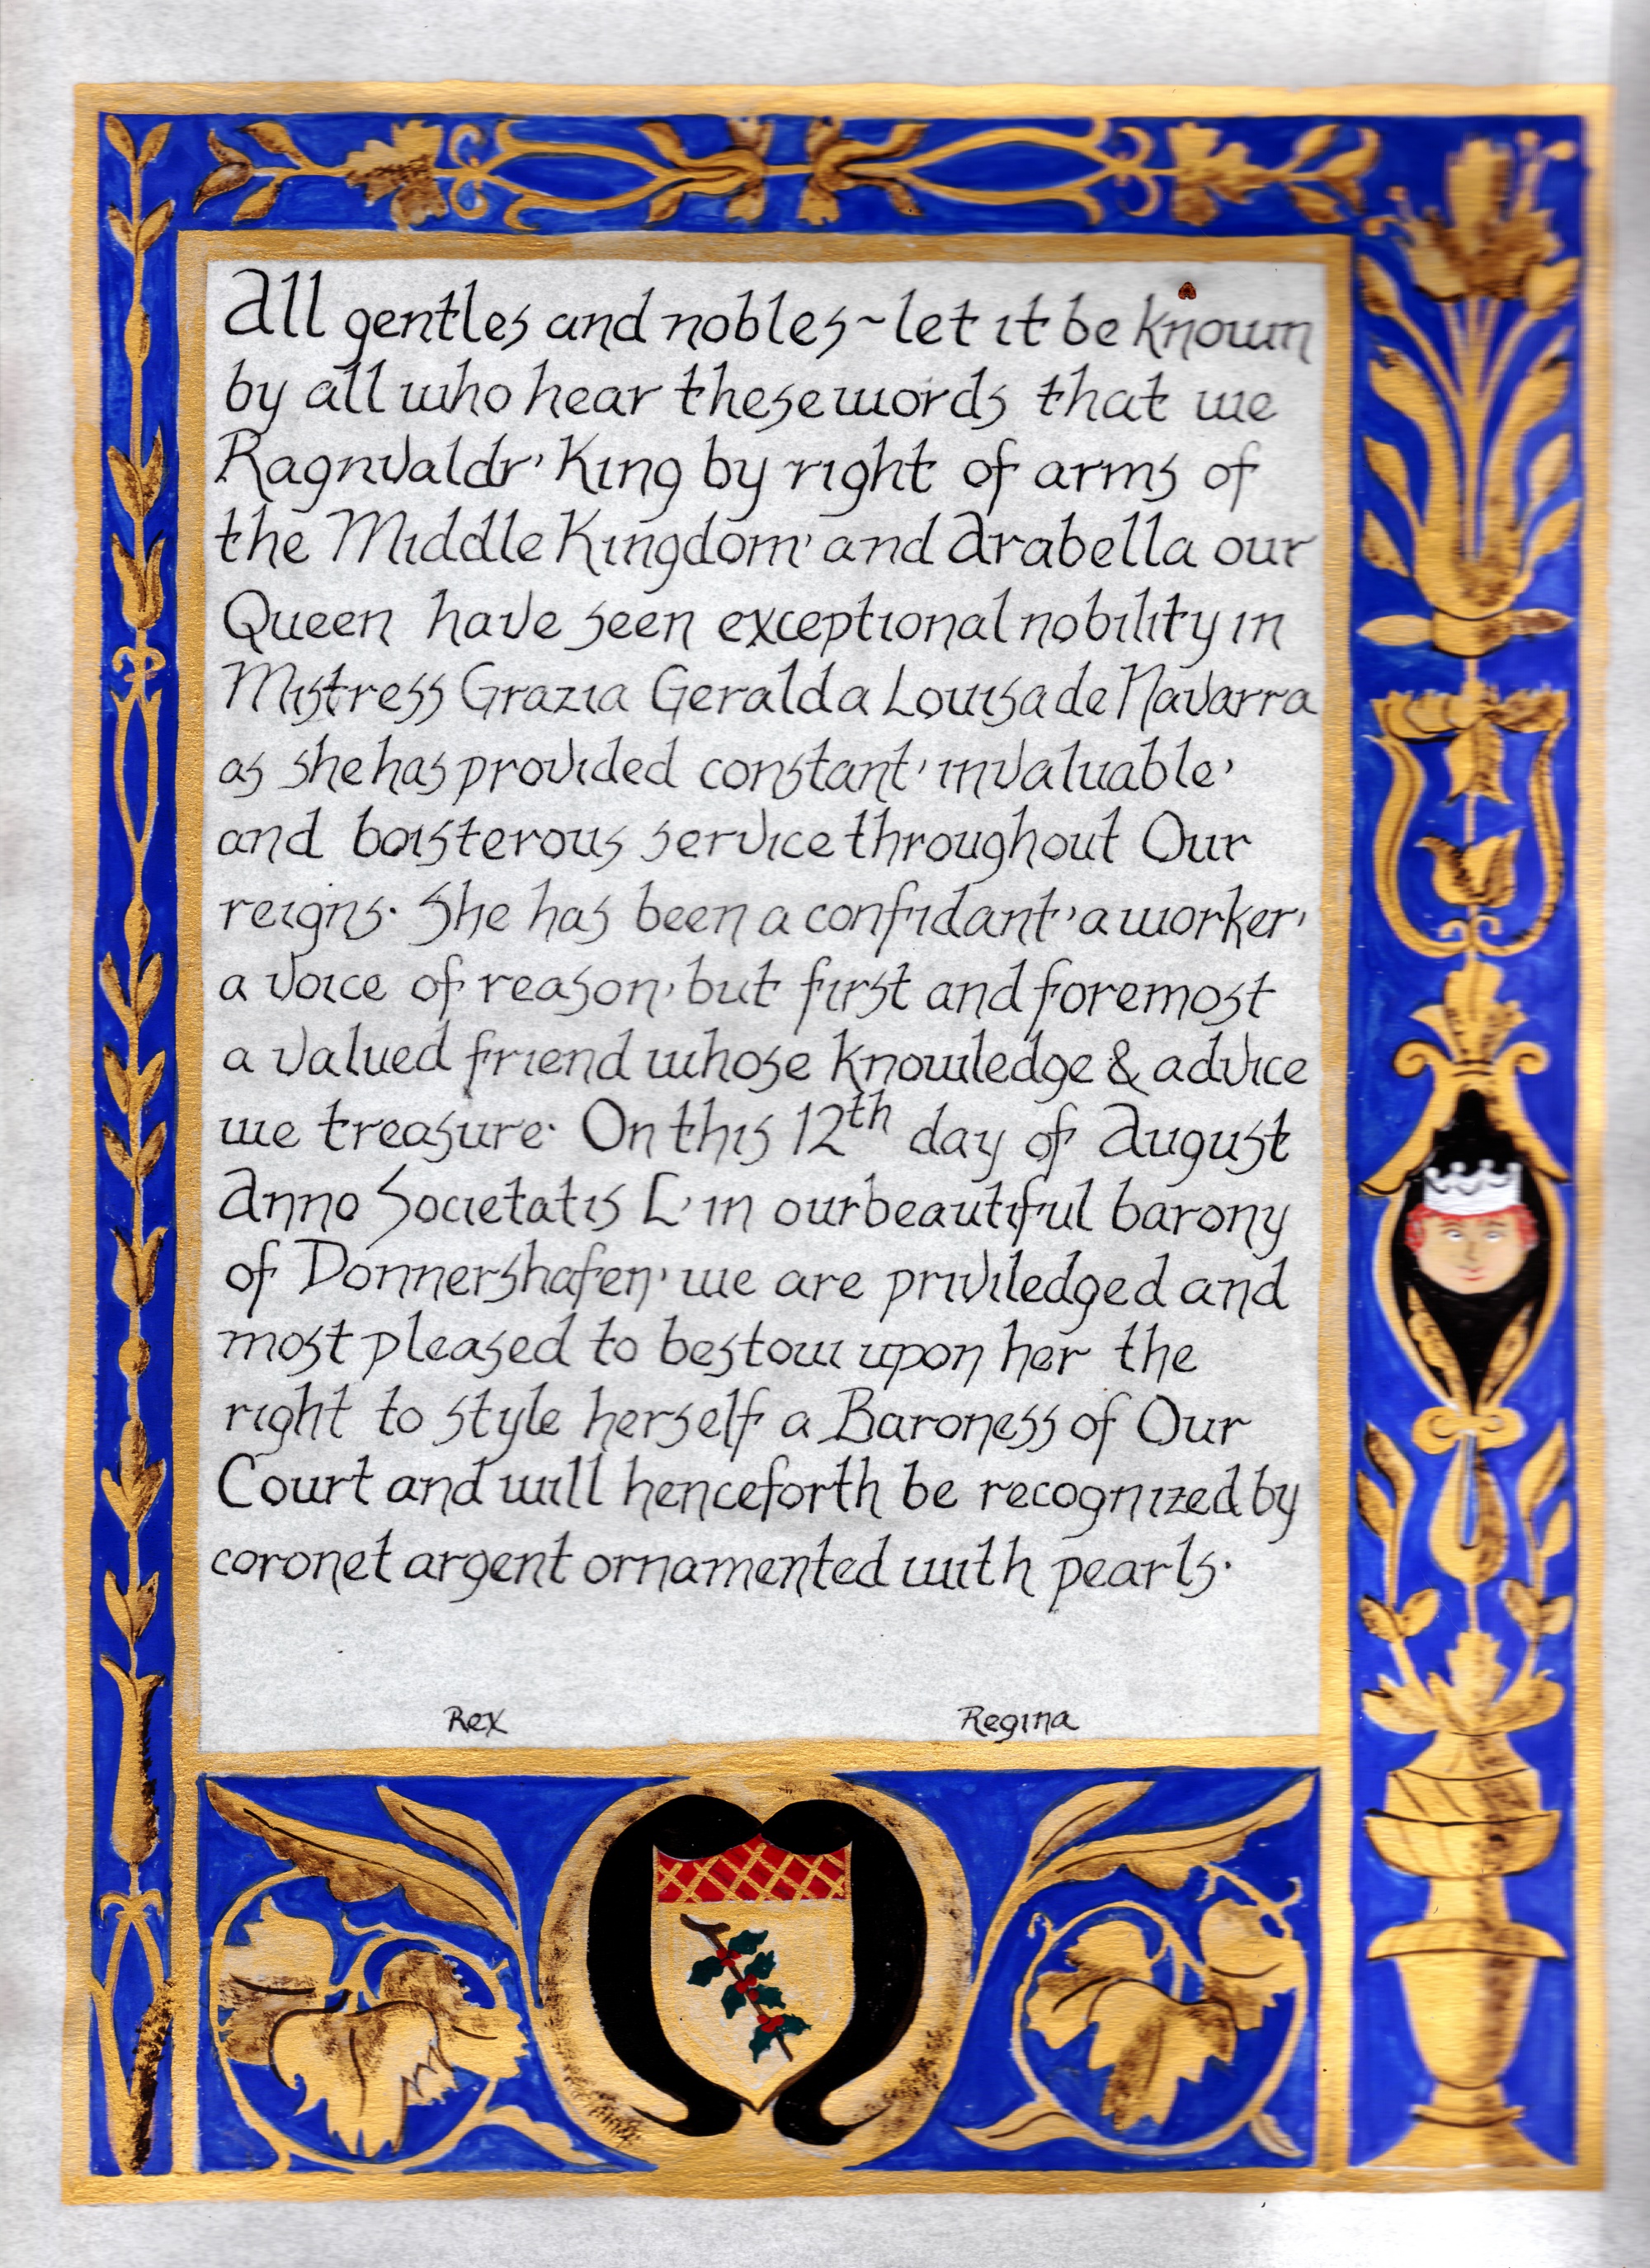 All gentles and nobles~let it be known
by all who hear these words that we
Ragnvaldr, King by right of arms of
the Middle Kingdom, and Arabella our
Queen have seen exceptional nobility in
Mistress Grazia Geralda Louisa de Navarra
as she has provided constant, invaluable,
and boisterous service throughout Our
reigns. She has been a confidant, a worker,
a voice of reason, but first and foremost
a valued friend whose knowledge & advice
we treasure. On this 12th day of August
Anno Societatis L, in our beautiful barony
of Donnershafen, we are priviledged and
most pleased to bestow upon her the
right to style herself a Baroness of Our
Court and will henceforth be recognized by
coronet argent ornamented with pearls.
Rex Regina